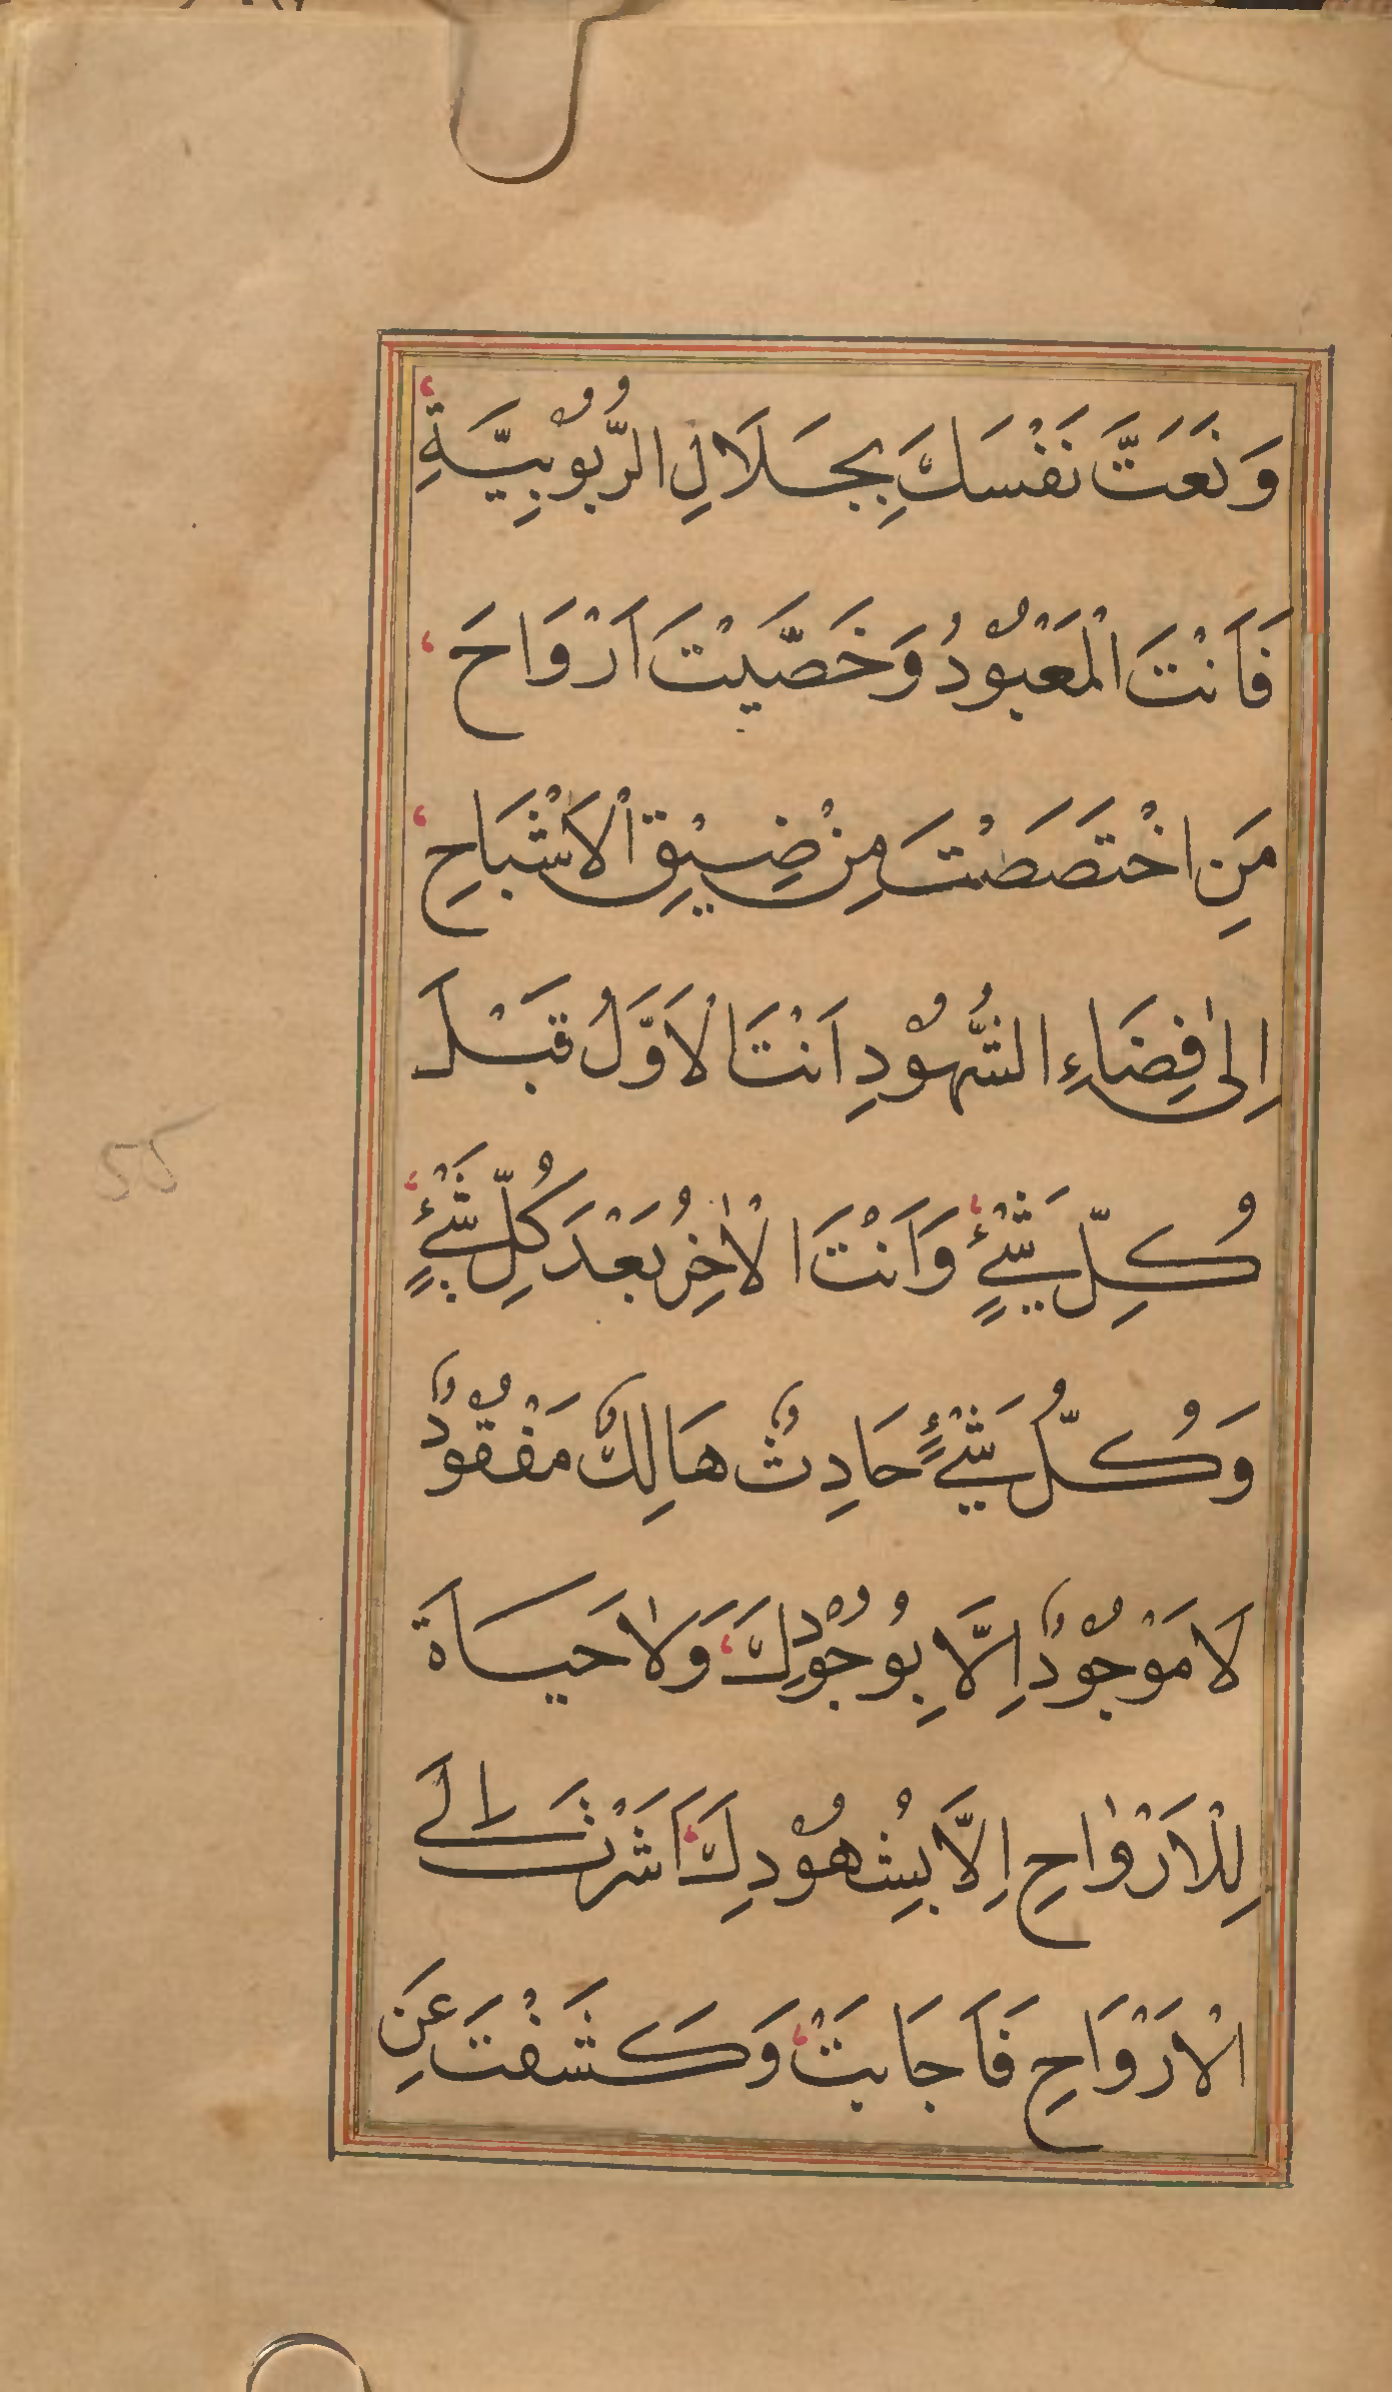 وَنَعَتَّ نَفْسَكَ بِجَلَالِ الرُّبُوْبِيَّةِ
فَاَنْتَ الْمَعْبُوْدُ وَخَصَّيْتَ اَرْوَاحَ
مَنِ اخْتَصَصْتَ مِنْ ضِيْقِ الْاَشْبَاحِ
اِلٰى فِضَاءِ الشُّهُوْدِ اَنْتَ الْاَوَّلُ قَبْلَ
كُلِّ شَيْءٍ وَاَنْتَ الْاٰخِرُ بَعْدَ كُلِّ شَيْءٍ
وَكُلُّ شَيْءٍ حَادِثٌ هَالِكٌ مَفْقُوْدٌ
لَا مَوْجُوْدٌ اِلَّا بِوُجُوْدِكَ وَلَا حَيَاةَ
لِلْاَرْوَاحِ اِلَّا بِشُهُوْدِكَ اَشَرْتَ اِلَى
الْاَرْوَاحِ فَاَجَابَتْ وَكَشَفْتَ عَنِ